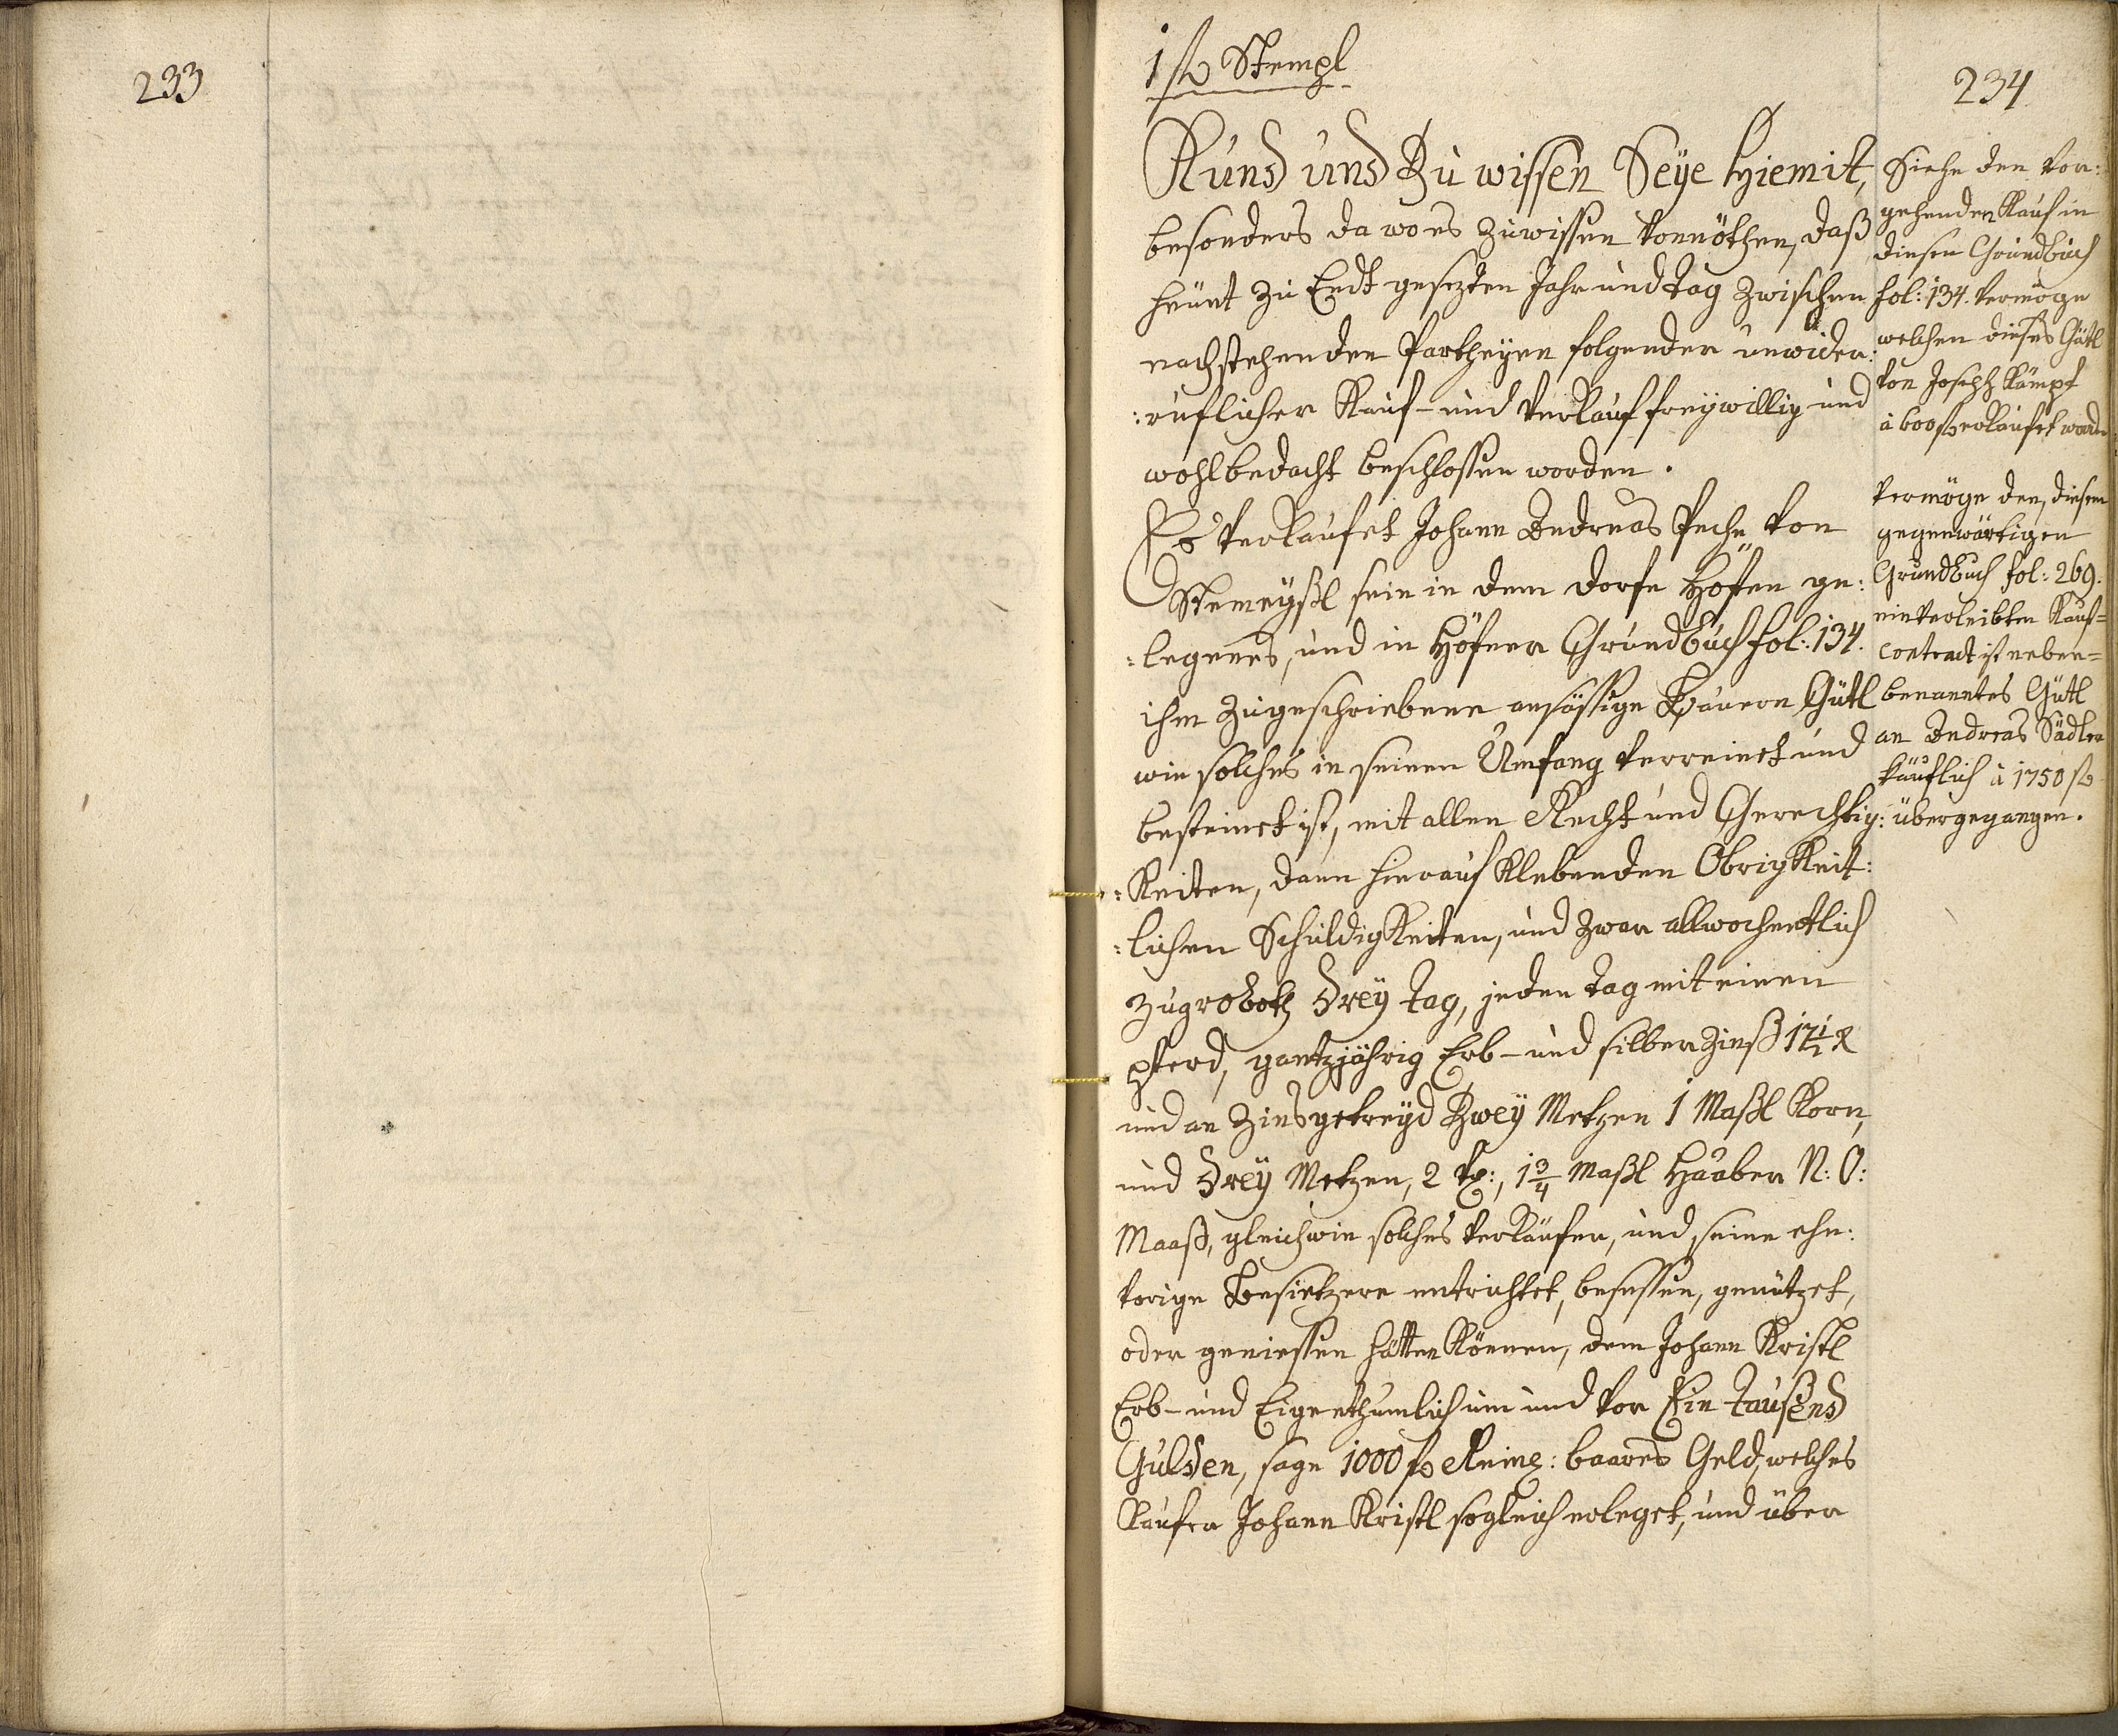 233
1 fl Stempl
234
Kund und Zu wissen Seÿe Hiemit,
besonders da wo es zuwissen vonnöthen, daß
heünt zu Endt gesezten Jahr und tag zwischen
nachstehenden Partheyen folgender unwider:
:ruflicher Kauf- und Verkauf freywillig und
wohlbedacht beschlossen worden.
Es Verkaufet Johann Andreas Peche von
sein in dem Dorfe Höfen ge:
:legenes, und in Höfner Grundbuch fol: 134.
ihm zugeschriebene ansässige Bauern Gütl
wie solches in seinen Umfang verreinet und
besteinet ist, mit allen Recht und Gerechtig:
:Keiten, dann hierauf Klebenden ObrigKeit:
:lichen SchuldigKeiten, und zwar allwochentlich
Zugroboth Dreÿ tag, jeden tag mit einen
Pferd, gantzjährig Erb- und silber Zinß 17 1/2 x
und an Zinsgetreyd Zweÿ Metzen 1 Maßl Korn,
und Dreÿ Metzen, 2 1 3/4 Maßl Haaber N: Ö:
Maaß, gleichwie solches Verkäufer, und seine ehe:
vorige Besietzere entrichtet, besessen, genützet,
oder geniessen hätten Können, dem Johann Kristl
Erb- und Eigenthumlich um und vor Ein Taußend
Gulden, sage 1000 fl Reinl: baares Geld, welches
Kaufer Johann Kristl sogleich erleget, und über
Siehe den vor:
gehenden Kauf in
diesen Grundbuch
fol: 134. vermöge
welchen dieses Gütl
von Joseph Kämpf
à 600 fl erkaufet worden
Vermöge den, diesem
gegenwärtigen
Grundbuch fol: 269.
einverleibten Kauf=
contract ist neben=
benanntes Gütl
an Andreas Sädler
käuflich à 1750 fl
übergegangen.